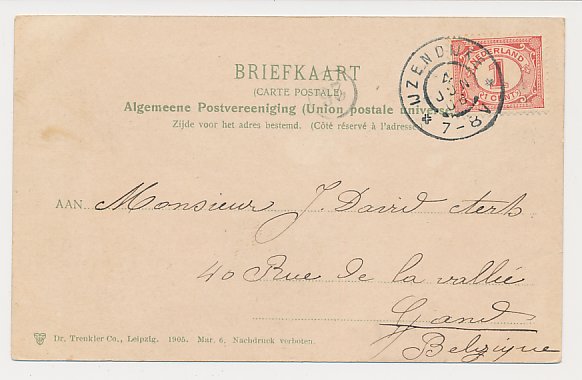 BRIEFKAART
(CARTE POSTALE)
Algemeene Postvereeniging (Union postale univers
Zijde voor het adres bestemd. (Côté réservé à l'adresse
IJZENDIJKE
4 JUN
7-8V
NEDERLAND
1
(1 CENT)
AAN Monsieur J. David Aerts
40 Rue de la vallée
Gand
Belgique
Dr. Trenkler Co., Leipzig. 1905. Mar. 6. Nachdruck verboten.